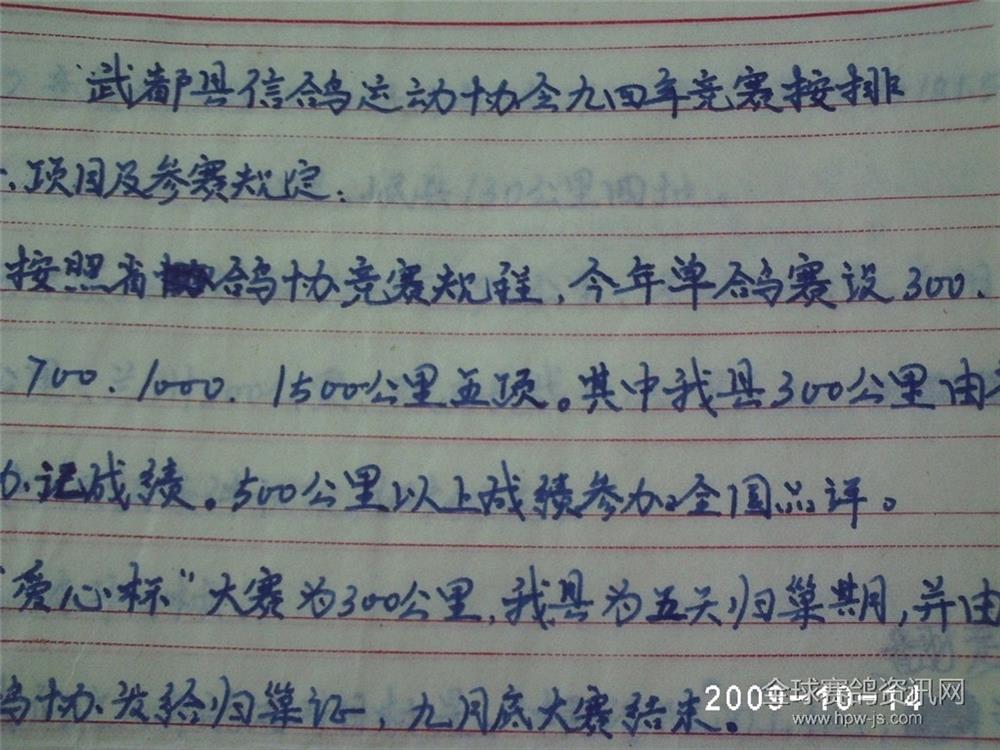 武都县信鸽运动协会九四年竞赛按排
、项目及参赛规定:
按照省鸽协竞赛规程,今年单鸽赛设300.
700.1000.1500公里五项。其中我县300公里由
办.记成绩。500公里以上成绩参加全国品评。
"爱心杯"大赛为300公里,我县为五关归巢期,并由
鸽协发给归巢证,九月底大赛结束。
2009-10-14
全球赛鸽资讯网
www.hpw-js.com